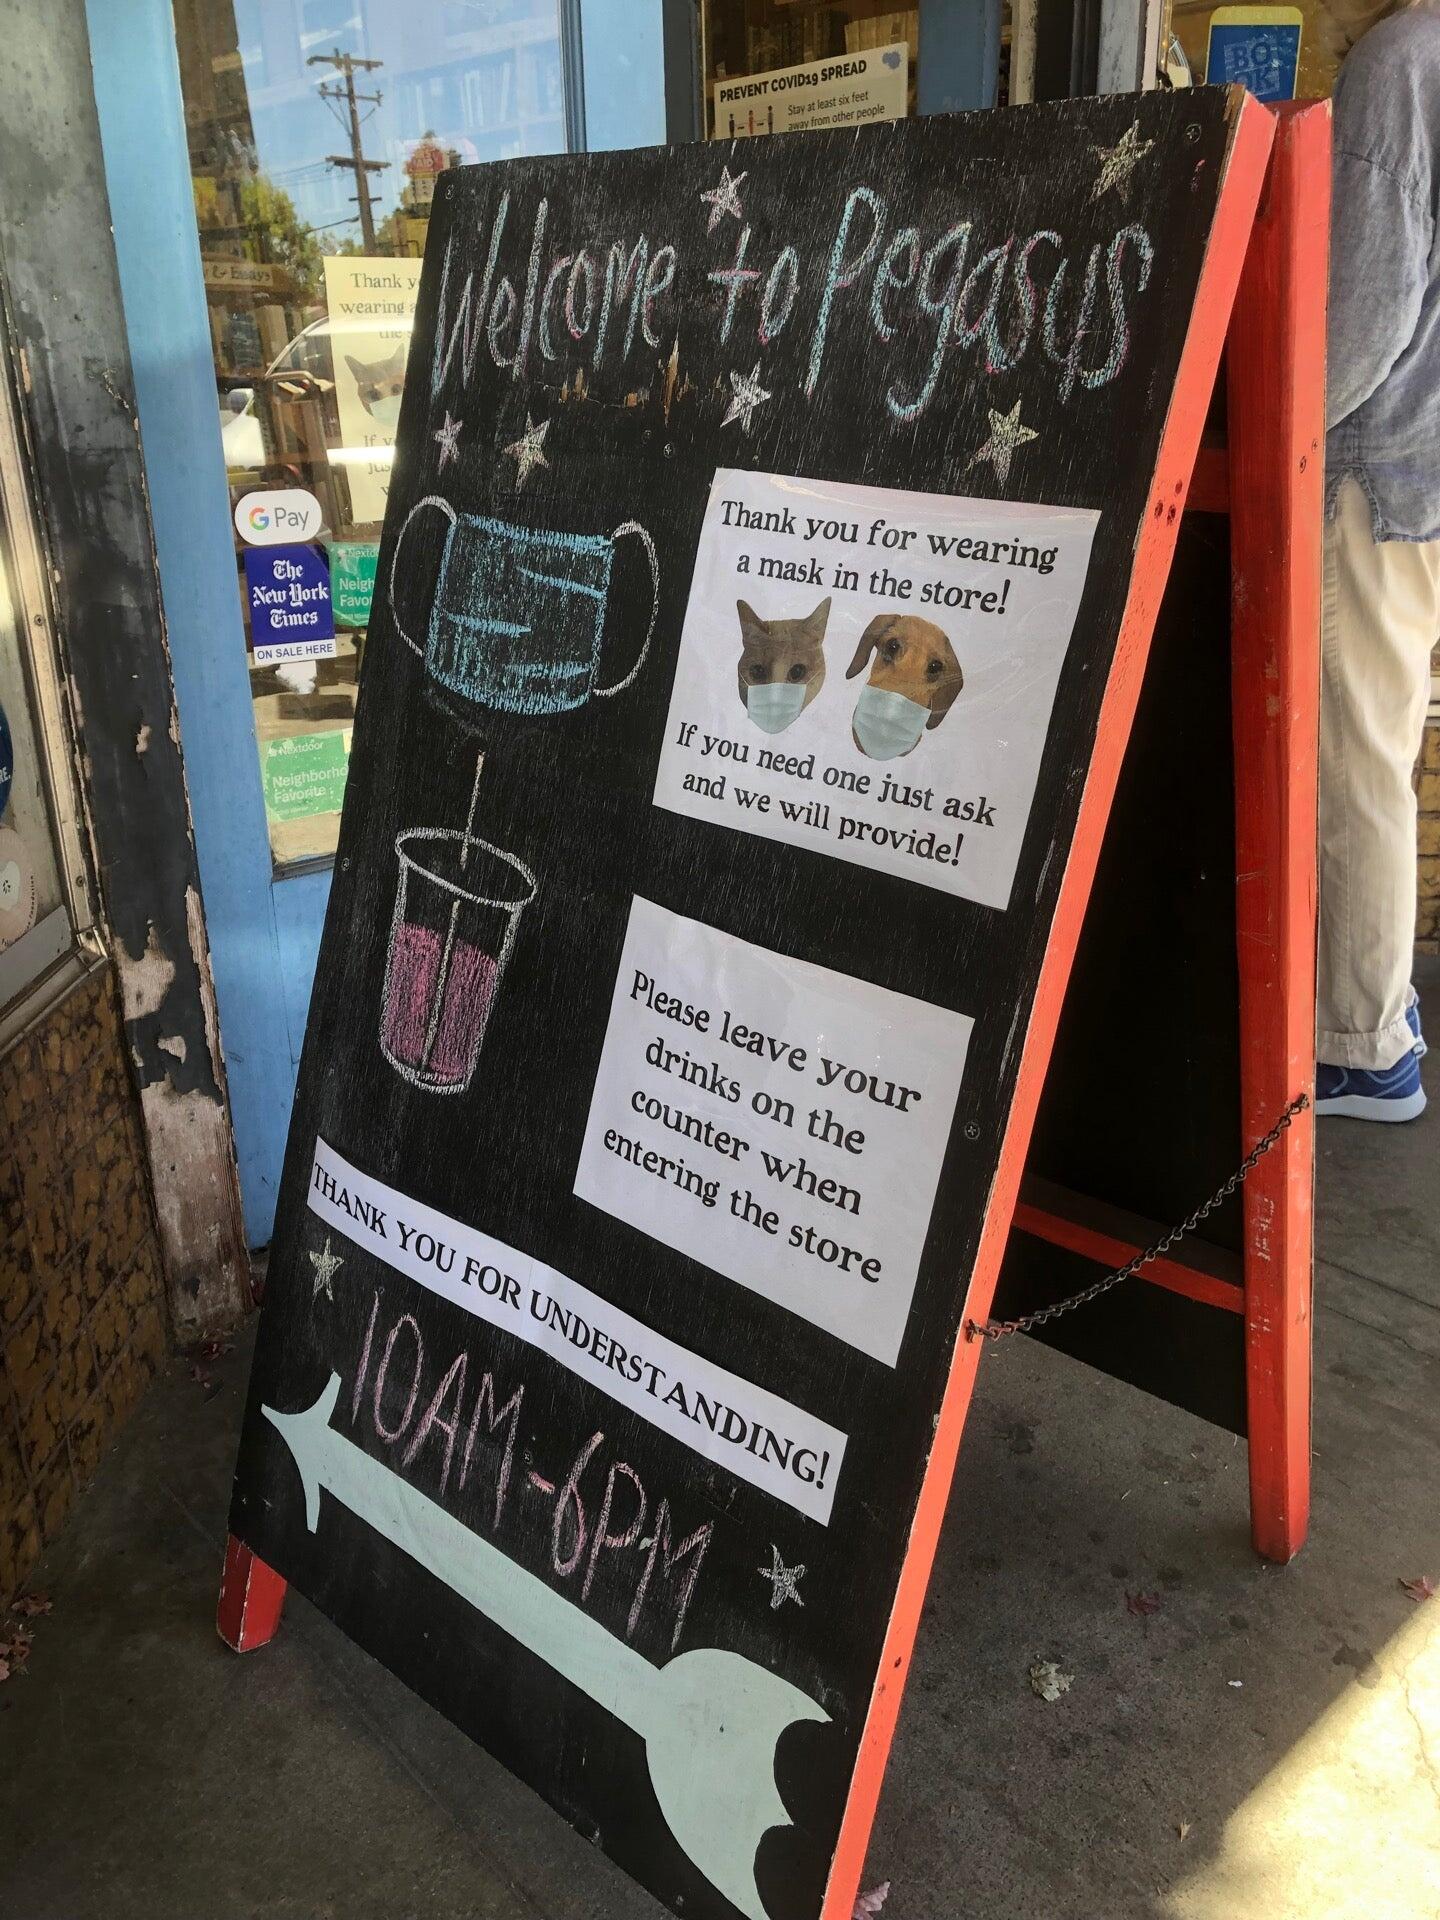 PREVENT COVID19 SPREAD
Stay at least six feet
away from other people
BO
OK
Welcome to Pegasus
Thank you for wearing
a mask in the store!
If you need one just ask
and we will provide!
Please leave your
drinks on the
counter when
entering the store
THANK YOU FOR UNDERSTANDING!
10AM-6PM
& Essays
Thank
wearing
If
G Pay
The
New York
Times
ON SALE HERE
Nextdoor
Neighborho
Favorite